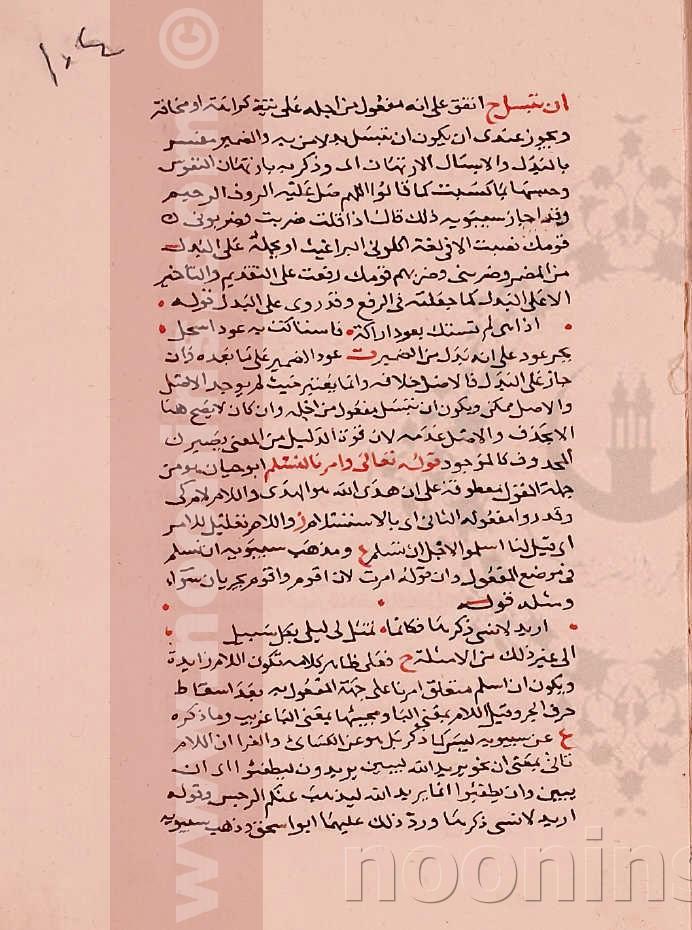 ان تبسل ح اتفق على انه مفعول من اجله على نية كراهة او مخافة
ويجوز عندى ان يكون ان تبسل بدلا من به والضمير مفسر
بالبدل والابسال الارتهان اى وذكر به بارتهان النفوس
وحبسها بما كسبت كما قالوا اللهم صل عليه الروف الرحيم
وقد اجاز سيبويه ذلك قال اذا قلت ضربت وضربونى
قومك نصبت الا فى لغة اكلونى البراغيث او بجلة على البدل
من المضمر وضربنى وضربهم قومك رفعت على التقديم والتاخير
الا على البدل كما جعلته فى الرفع وقد روى على البدل قوله
اذا هى لم تستك بعود اراكة فاستاكت به عود اسحل
بجر عود على انه بدل من الضمير ت عود الضمير على ما بعده
جاز على البدل فالاصل خلافه وانما حيث لم يوجد الاصل
والاصل ممكن ويكون ان تبسل مفعول من اجله وان كان لا يصح هنا
الا بحذف والاصل عدمه لان قوة الدليل من المعنى يصير
المحذوف كالموجود قوله تعالى وامرنا لنسلم ابو حيان هو من
جملة القول معطوفة على ان هدى الله هو الهدى واللام لام كى
وقدروا مفعوله الثانى اى بالاستسلام ز واللام تعليل للامر
اى قيل لنا اسلموا لاجل ان نسلم ع ومذهب سيبويه ان نسلم
فى موضع المفعول وان قوله امرت لان اقوم واقوم يجريان سواء
ومثله قول
اريد لانسى ذكرها فكانما تمثل لى ليلى بكل سبيل
الى غير ذلك من الامثلة ح فعلى ظاهر كلامه تكون اللام زايدة
ويكون ان اسلم متعلق امرنا على جهة المفعول به بعد اسقاط
حرف الجر وقيل اللام بمعنى البا ومجيئها بمعنى البا غريب وما ذكره
ع عن سيبويه ليس كما ذكر بل هو عن الكسائى والفرا ان اللام
تاتى بمعنى ان نحو يريد الله ليبين يريدون ليطفئوا اى ان
يبين وان يطفئوا انما يريد الله ليذهب عنكم الرجس وقوله
اريد لانسى ذكرها ورد ذلك عليهما ابو اسحق وذهب سيبويه
noonins